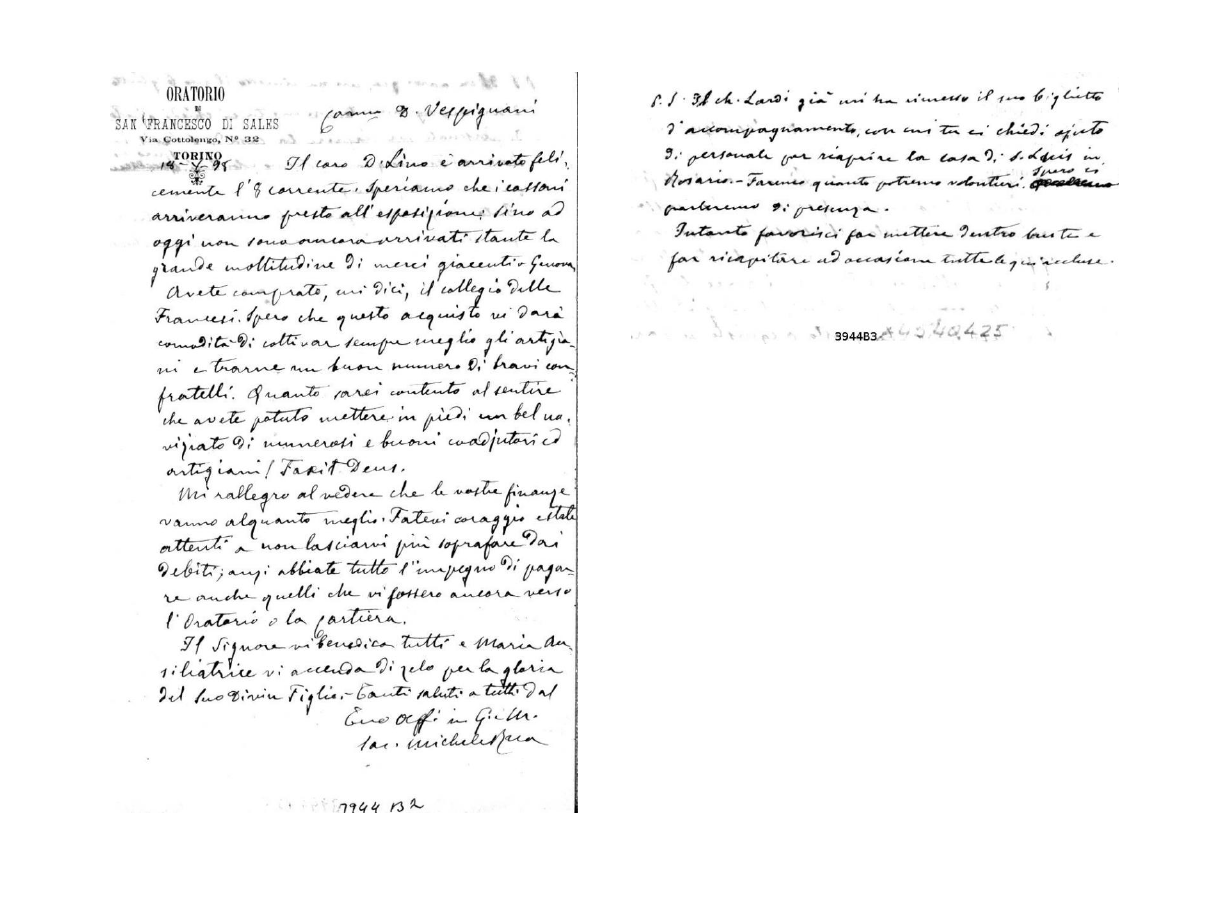 ORATORIO
DI
SAN FRANCESCO DI SALES
Via Cottolengo, Nº 32
TORINO
Carmo D. Vespignani
18-V-98 Il caro D. Lino è arrivato feli-
cemente l'8 corrente. Speriamo che i cassoni
arriveranno presto all'esposizione; sino ad
oggi non sono ancora arrivati stante la
grande moltitudine di merci giacenti a Genova
Avete comprato, mi dici, il collegio delle
Francesi. Spero che questo acquisto vi darà
comodità di coltivar sempre meglio gli artigia-
ni e trarne un buon numero di bravi con-
fratelli. Quanto sarei contento al sentire
che avete potuto mettere in piedi un bel no-
viziato di numerosi e buoni coadjutori ed
artigiani! Faxit Deus.
Mi rallegro al vedere che le vostre finanze
vanno alquanto meglio. Fatevi coraggio e state
attenti a non lasciarvi più soprafare dai
debiti; anzi abbiate tutto l'impegno di paga-
re anche quelli che vi fossero ancora verso
l'Oratorio o la cartiera.
Il Signore vi benedica tutti e Maria Au-
siliatrice vi accenda di zelo per la gloria
del suo Divin Figlio. - Tanti saluti a tutti dal
Tuo aff. in G. e M.
Sac. Michele Rua
3944 B2
P.S. Il ch. Lardi già mi ha rimesso il suo biglietto
d'accompagnamento, con cui tu ci chiedi ajuto
di personale per riaprire la casa di S. Luis in
Rosario. - Faremo quanto potremo volontieri. Spero ci
parleremo di presenza.
Intanto favorisci far mettere dentro buste e
far ricapitare ad occasione tutte le qui accluse.
3944B3